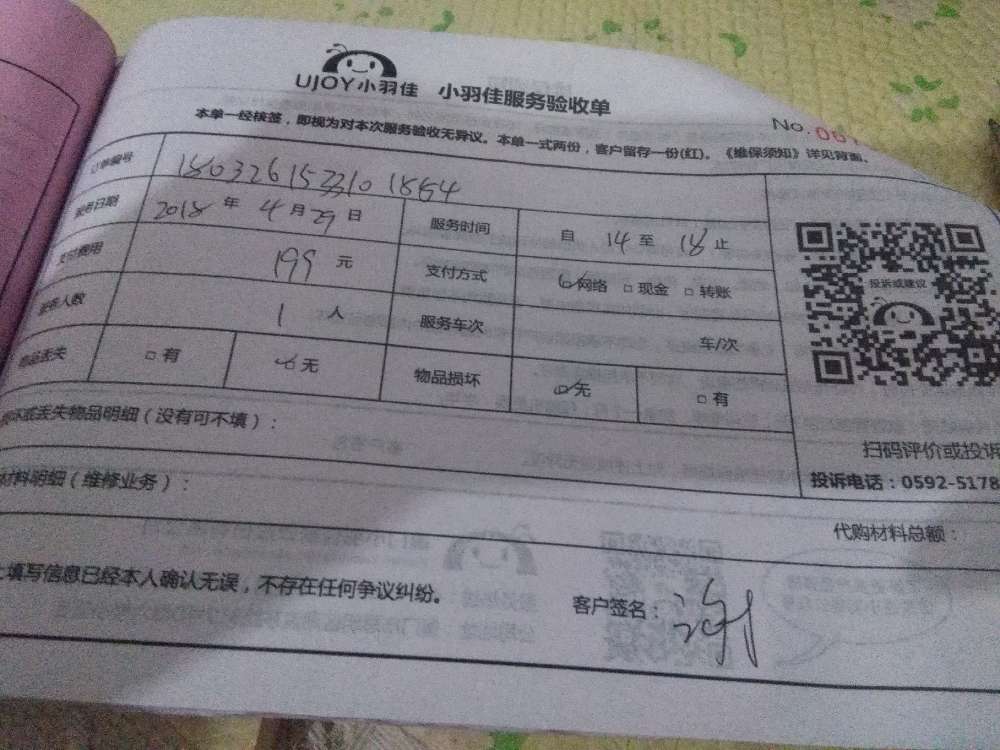 UJOY小羽佳 小羽佳服务验收单
No. 00
本单一经核签，即视为对本次服务验收无异议。本单一式两份，客户留存一份(红)。《维保须知》详见背面。
订单编号 180326153310 1854
服务日期 2018 年 4 月 29 日 服务时间 自 14 至 18 止
支付费用 199 元 支付方式 网络 □ 现金 □ 转账
服务人数 1 人 服务车次 车/次
物品丢失 □ 有 无 物品损坏 无 □ 有
投诉或建议
扫码评价或投诉
投诉电话：0592-5178
损坏或丢失物品明细（没有可不填）：
材料明细（维修业务）：
代购材料总额：
上填写信息已经本人确认无误，不存在任何争议纠纷。
客户签名：